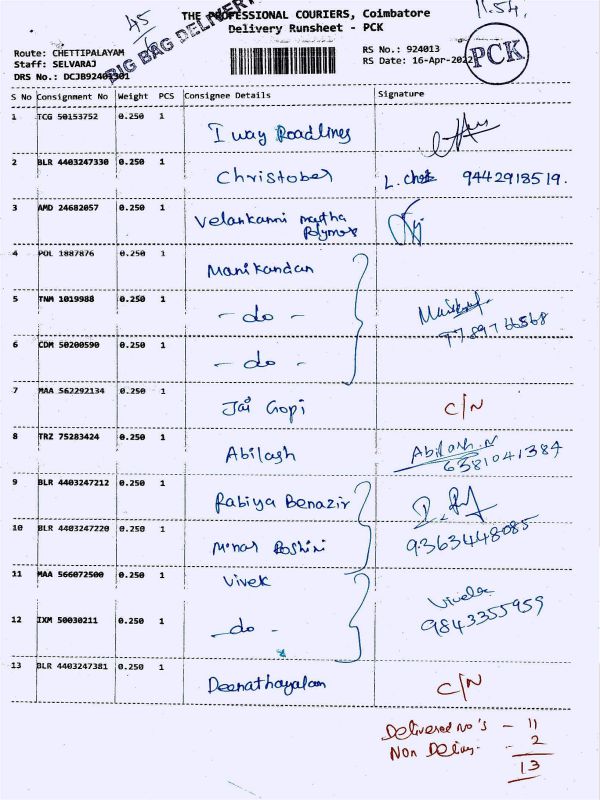 45
11.54
THE PROFESSIONAL COURIERS, Coimbatore
Delivery Runsheet - PCK
BIG BAG DELIVERY
PCK
Route: CHETTIPALAYAM
Staff: SELVARAJ
DRS No.: DCJB92401301
RS No.: 924013
RS Date: 16-Apr-2022
S No Consignment No Weight PCS Consignee Details Signature
1 TCG 50153752 0.250 1 I way Roadlines
2 BLR 4403247330 0.250 1 Christober L. 9442918519.
3 AMD 24682057 0.250 1 Velankanni martha
Polymers
4 POL 1887876 0.250 1 Manikandan
5 TNM 1019988 0.250 1 - do -
6 CDM 50200590 0.250 1 - do -
7 MAA 562292134 0.250 1 Jai Gopi C/N
8 TRZ 75283424 0.250 1 Abilash Abilash.N
6381041384
9 BLR 4403247212 0.250 1 Rabiya Benazir
10 BLR 4403247220 0.250 1 Roshini 9363448085
11 MAA 566072500 0.250 1 Vivek
12 IXM 50030211 0.250 1 - do - 9843355959
13 BLR 4403247381 0.250 1 Deenathayalan C/N
Delivered no's - 11
Non - 2
13